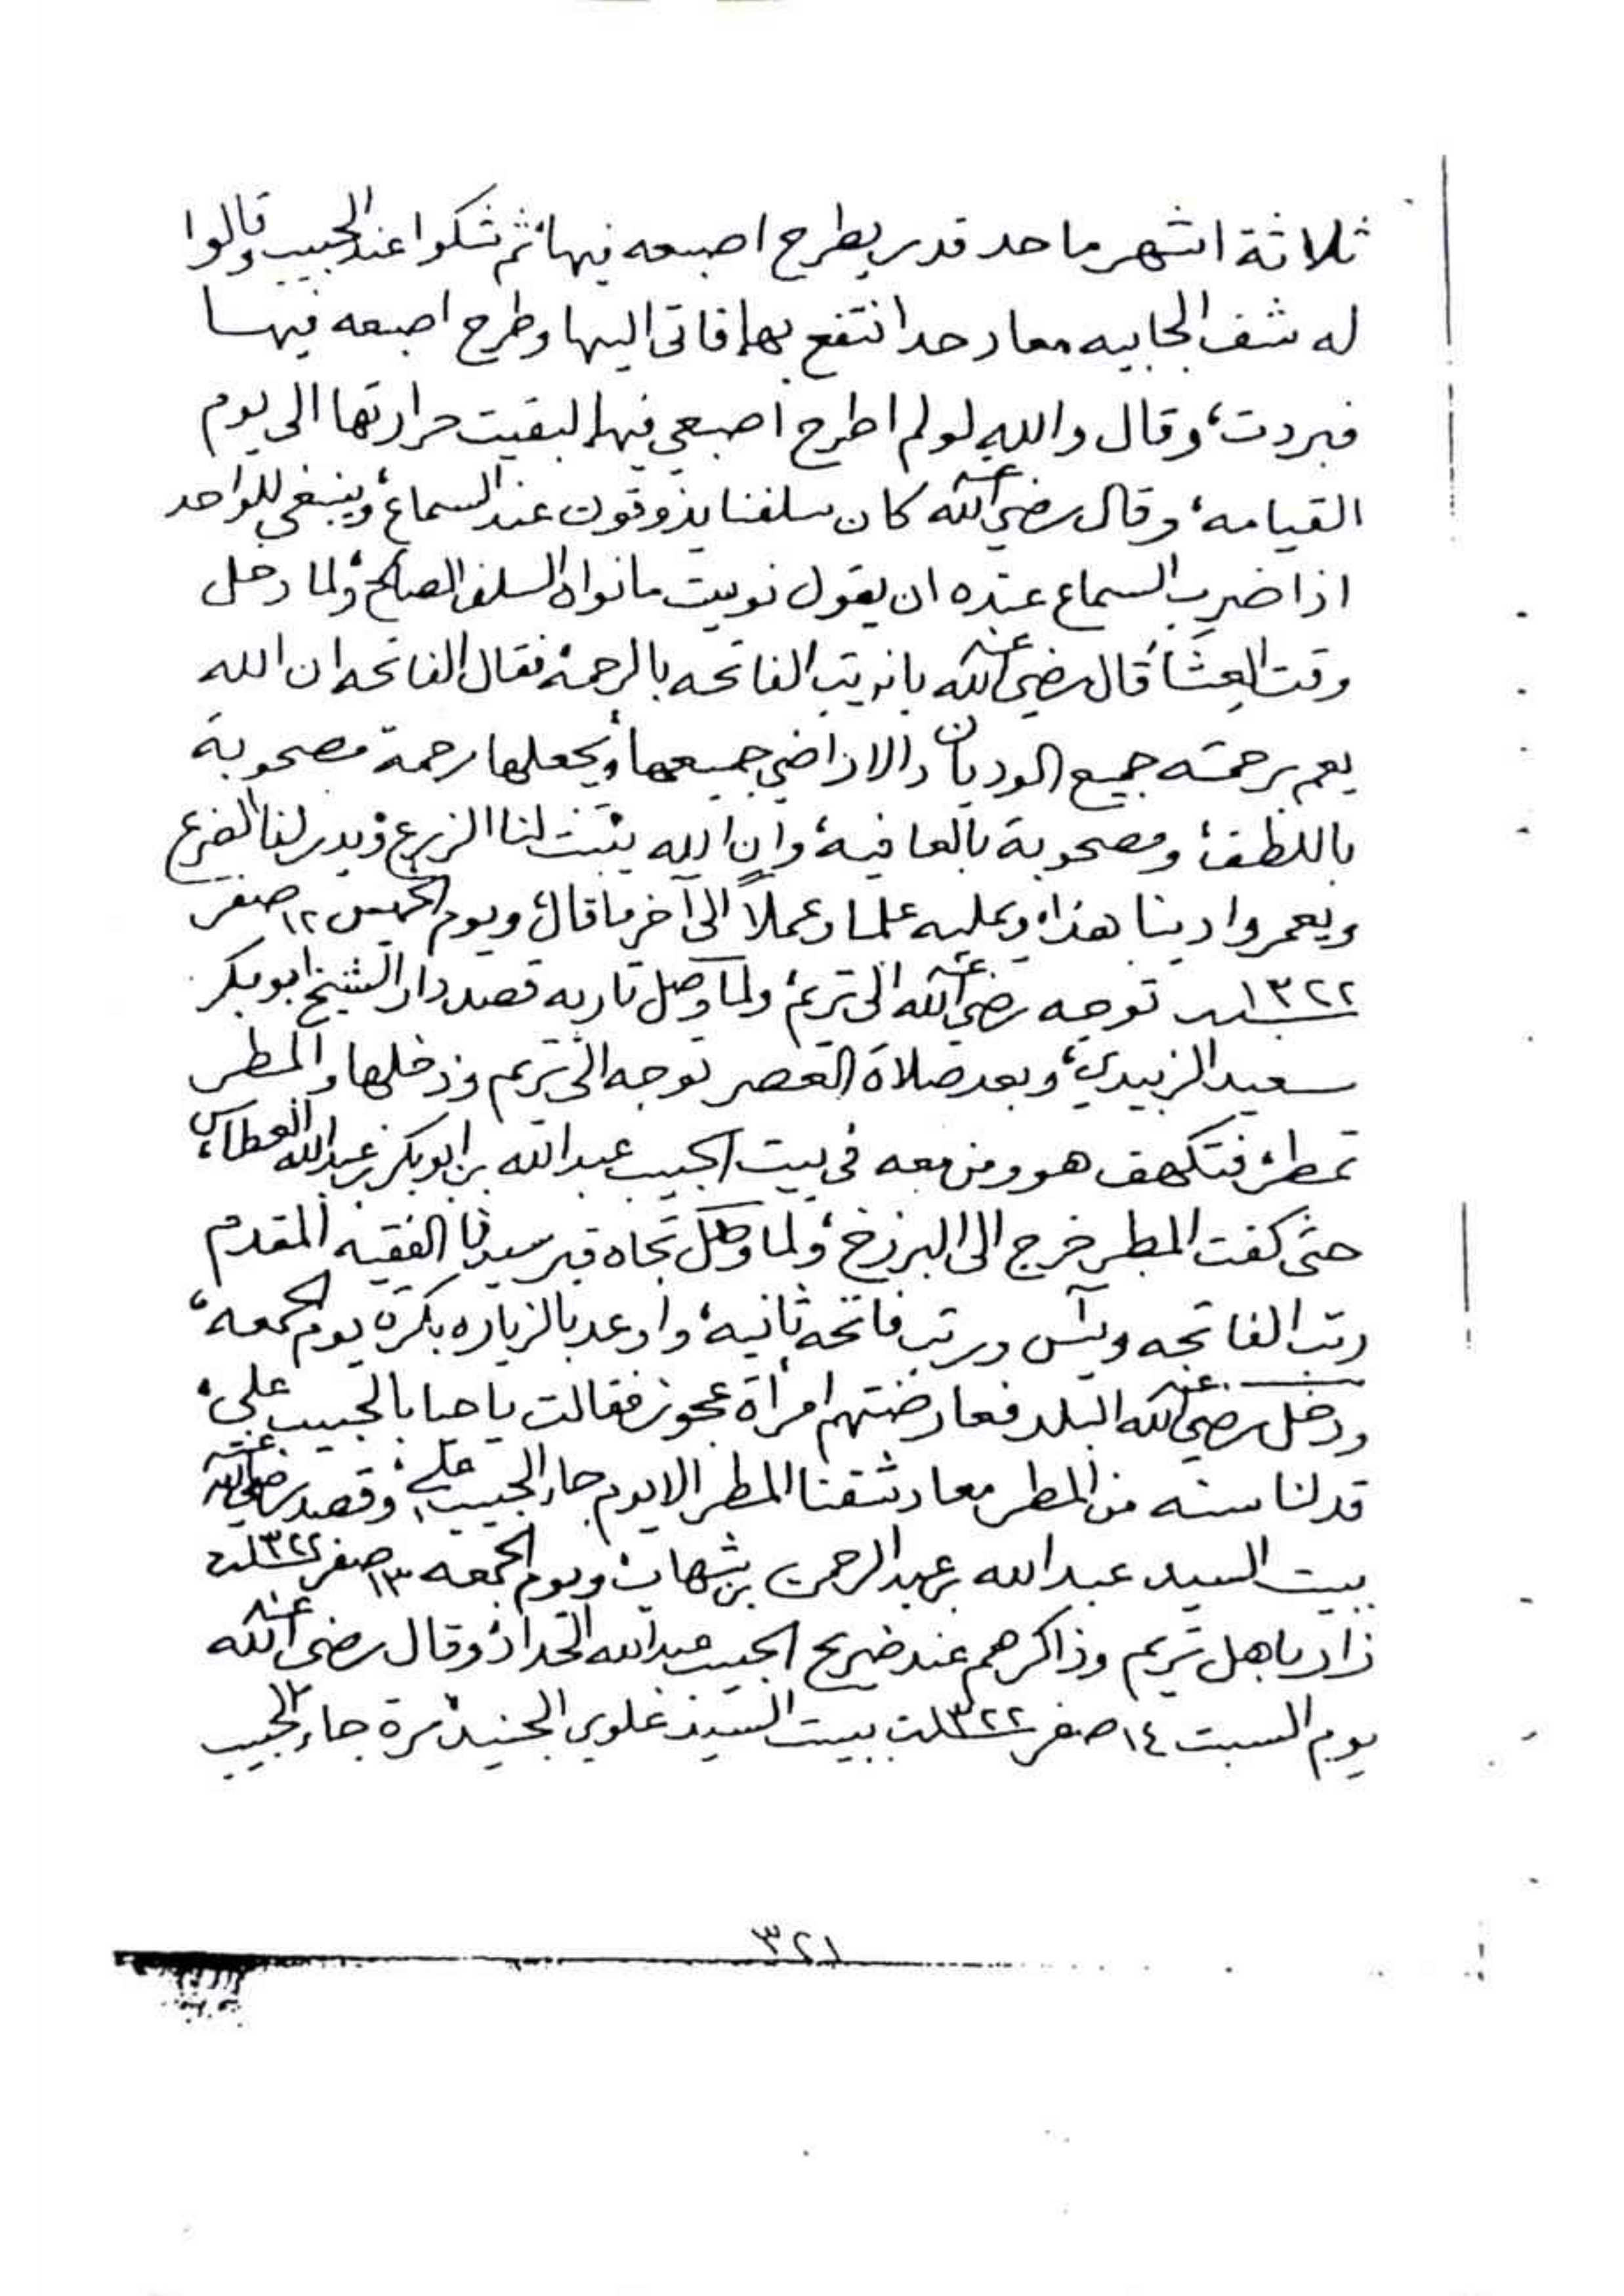 ثلاثة اشهر ما حد قدر يطرح اصبعه فيها، ثم شكوا عند الحبيب وقالوا
له شف الجابيه معاد حد انتفع بها، فاتى اليها وطرح اصبعه فيها
فبردت، وقال والله لو لم اطرح اصبعي فيها لبقيت حرارتها الى يوم
القيامه، وقال رضي الله عنه كان سلفنا يذوقون عند السماع، وينبغي للواحد
اذا ضرب السماع عنده ان يقول نويت ما نواه السلف الصالح، ولما دخل
وقت العشاء قال رضي الله عنه بانرتب الفاتحه بالرحمة، فقال الفاتحه ان الله
يعم برحمته جميع الوديان والاراضي جميعها، ويجعلها رحمة مصحوبة
باللطف، ومصحوبة بالعافية، وان الله ينبت لنا الزرع ويدر لنا الضرع
ويعمر وادينا هذا، ويمليه علما وعملاً الى آخر ما قال، ويوم الخميس ١٢ صفر
١٣٢٢ توجه رضي الله عنه الى تريم، ولما وصل تاربه قصد دار الشيخ ابوبكر
سعيد الزبيدي، وبعد صلاة العصر توجه الى تريم ودخلها والمطر
تمطر، فتكهف هو ومن معه في بيت الحبيب عبد الله بن ابوبكر بن عبد الله العطاس،
حتى كفت المطر خرج الى البرزخ، ولما وصل تجاه قبر سيدنا الفقيه المقدم
رتب الفاتحه ويآس ورتب فاتحه ثانية، واوعد بالزياره بكرة يوم الجمعه،
ودخل رضي الله عنه البلد فعارضتهم امرأة عجوز فقالت يا حيا بالحبيب علي،
قد لنا سنه من المطر معاد شفنا المطر الا يوم جاء الحبيب علي، وقصد رضي الله عنه
بيت السيد عبد الله بن عبد الرحمن بن شهاب، ويوم الجمعه ١٣ صفر ١٣٢٢
زار باهل تريم وذاكرهم عند ضريح الحبيب عبد الله الحداد، وقال رضي الله عنه
يوم السبت ١٤ صفر ١٣٢٢ ببيت السيد علوي الجنيد، مرة جاء الحبيب
٣٢١